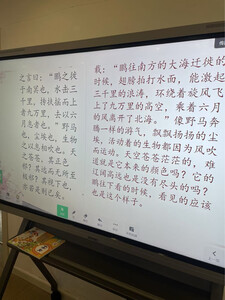 之言曰：“鹏之徙
于南冥也，水击三
千里，抟扶摇而上
者九万里，去以六
月息者也。”野马
也，尘埃也，生物
之以息相吹也。天
之苍苍，其正色
邪？其远而无所至
极邪？其视下也，
亦若是则已矣。
载：“鹏往南方的大海迁徙的
时候，翅膀拍打水面，能激起
三千里的浪涛，环绕着旋风飞
上了九万里的高空，乘着六月
的风离开了北海。”像野马奔
腾一样的游气，飘飘扬扬的尘
埃，活动着的生物都因为风吹
而运动。天空苍苍茫茫的，难
道就是它本来的颜色吗？它的
辽阔高远也是没有尽头的吗？
鹏往下看的时候，看见的应该
也是这个样子。